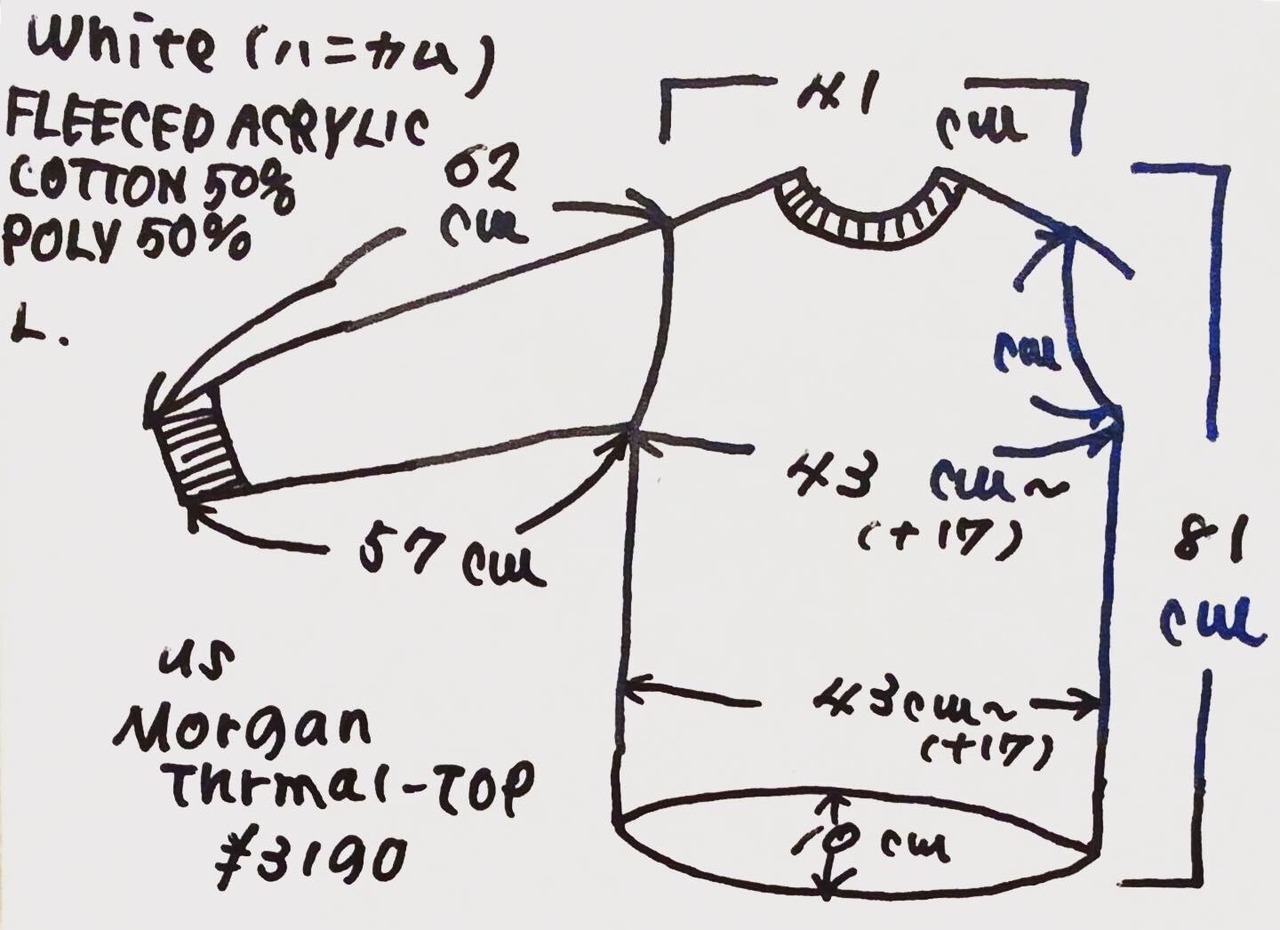 White (ハニカム)
FLEECED ACRYLIC
COTTON 50%
POLY 50%
L.
41 cm
62 cm
cm
43 cm~
(+17)
57 cm
81 cm
43cm~
(+17)
10 cm
US
Morgan
Thrmal-TOP
¥3190